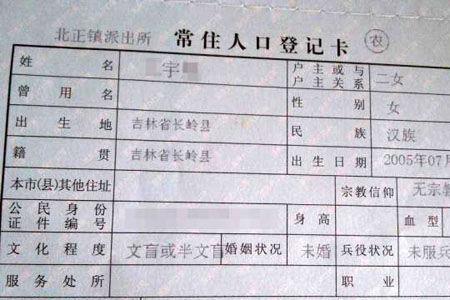 北正镇派出所 常住人口登记卡 农
姓名 宇 户主或与户主关系 二女
曾用名 性别 女
出生地 吉林省长岭县 民族 汉族
籍贯 吉林省长岭县 出生日期 2005年07月
本市(县)其他住址 宗教信仰 无宗教
公民身份证件编号 身高 血型
文化程度 文盲或半文盲 婚姻状况 未婚 兵役状况 未服兵
服务处所 职业